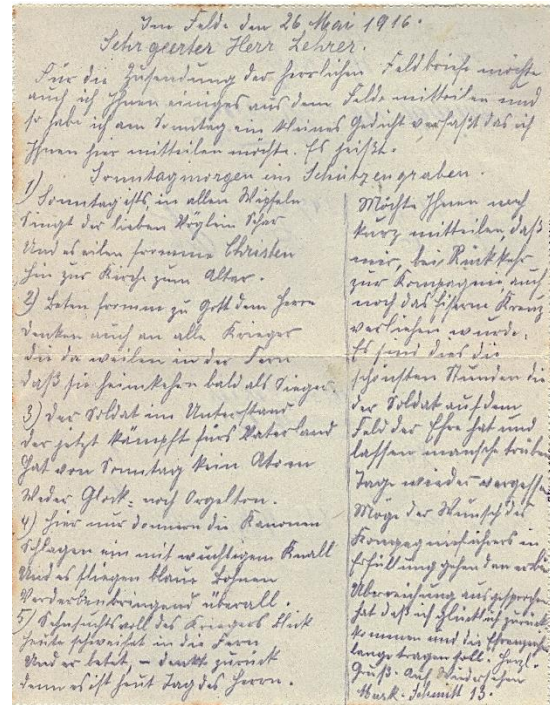 Im Felde den 26 Mai 1916.
Sehrgeerter Herr Lehrer.
Für die Zusendung der herrlichen Feldbriefe möchte
auch ich Ihnen einiges aus dem Felde mitteilen und
so habe ich am Sonntag ein kleines Gedicht verfaßt das ich
Ihnen hier mitteilen möchte. Es heißt:
Sonntagmorgen im Schützengraben.
1) Sonntag ists in allen Wipfeln
Singt der lieben Vöglein Schar
Und es eilen fromme Christen
hin zur Kirche zum Altar.
2) Beten fromm zu Gott dem Herrn
Denken auch an alle Krieger
die da weilen in der Fern
daß sie heimkehrn bald als Sieger.
3) Der Soldat im Unterstand
der jetzt kämpft fürs Vaterland
hat von Sonntag kein Atom
Weder Glock- noch Orgelton.
4) Hier nur donnern die Kanonen
Schlagen ein mit wuchtigem Knall
Und es fliegen blaue Bohnen
Verderbenbringend überall.
5) Sehnsuchtsvoll des Kriegers Blick
heute schweifet in die Fern
Und er betet, – denkt zurück
denn es ist heut Tag des Herrn.
Möchte Ihnen noch
kurz mitteilen daß
mir, bei Rückkehr
zur Kompagnie auch
noch das Eiserne Kreuz
verliehen wurde.
Es sind dies die
schönsten Stunden die
der Soldat auf dem
Feld der Ehre hat und
lassen manche trüben
Tage wieder vergessen
Möge der Wunsch des
Kompagnieführers in
Erfüllung gehen den er bei
Überreichung ausgesprochen
hat daß ich glücklich zurück
kommen und die
lange tragen soll. Herzl.
Gruß. Auf Wiedersehen
Musk. Schmitt 13.